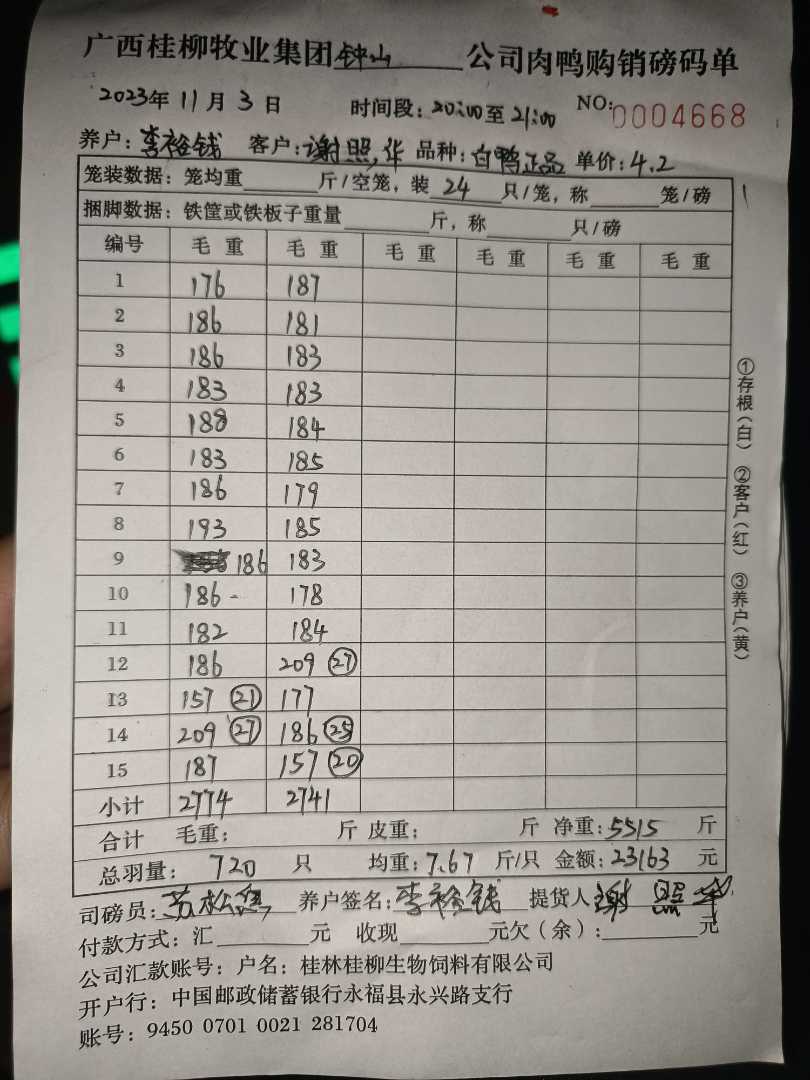 广西桂柳牧业集团钟山公司肉鸭购销磅码单
2023年 11月 3日 时间段：20:00至21:00 NO: 0004668
养户：李裕钱 客户：谢照华 品种：白鸭正品 单价：4.2
笼装数据：笼均重 斤/空笼，装 24 只/笼，称 笼/磅
捆脚数据：铁筐或铁板子重量 斤，称 只/磅
编号 毛重 毛重 毛重 毛重 毛重 毛重
1 176 187
2 186 181
3 186 183
4 183 183
5 188 184
6 183 185
7 186 179
8 193 185
9 186 183
10 186- 178
11 182 184
12 186 209 ㉗
13 157 ㉑ 177
14 209 ㉗ 186 ㉕
15 187 157 ⑳
小计 2774 2741
合计 毛重： 斤 皮重： 斤 净重：5515 斤
总羽量：720 只 均重：7.67 斤/只 金额：23163 元
司磅员：苏松 养户签名：李裕钱 提货人 谢照华
付款方式：汇 元 收现 元欠（余）： 元
公司汇款账号：户名：桂林桂柳生物饲料有限公司
开户行：中国邮政储蓄银行永福县永兴路支行
账号：9450 0701 0021 281704
①存根（白） ②客户（红） ③养户（黄）